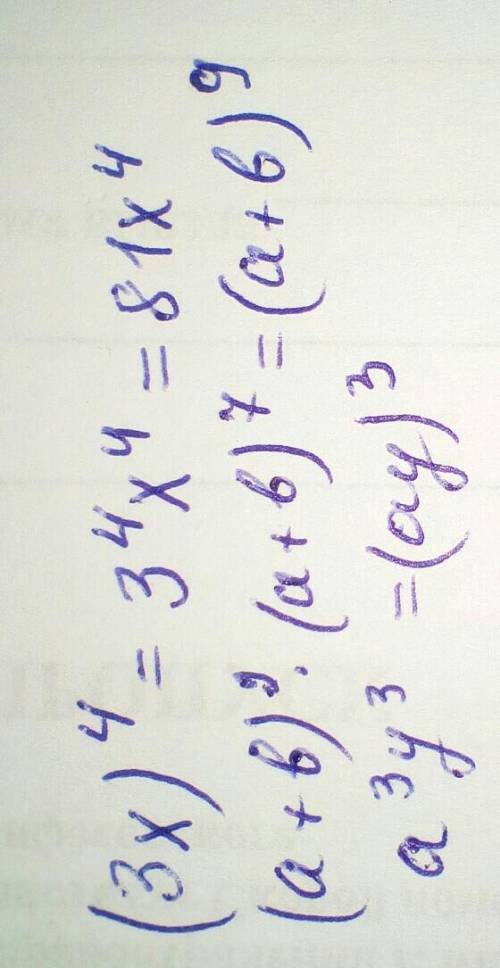 (3x)⁴ = 3⁴x⁴ = 81x⁴
(a + b)²·(a + b)⁷ = (a + b)⁹
a³y³ = (ay)³